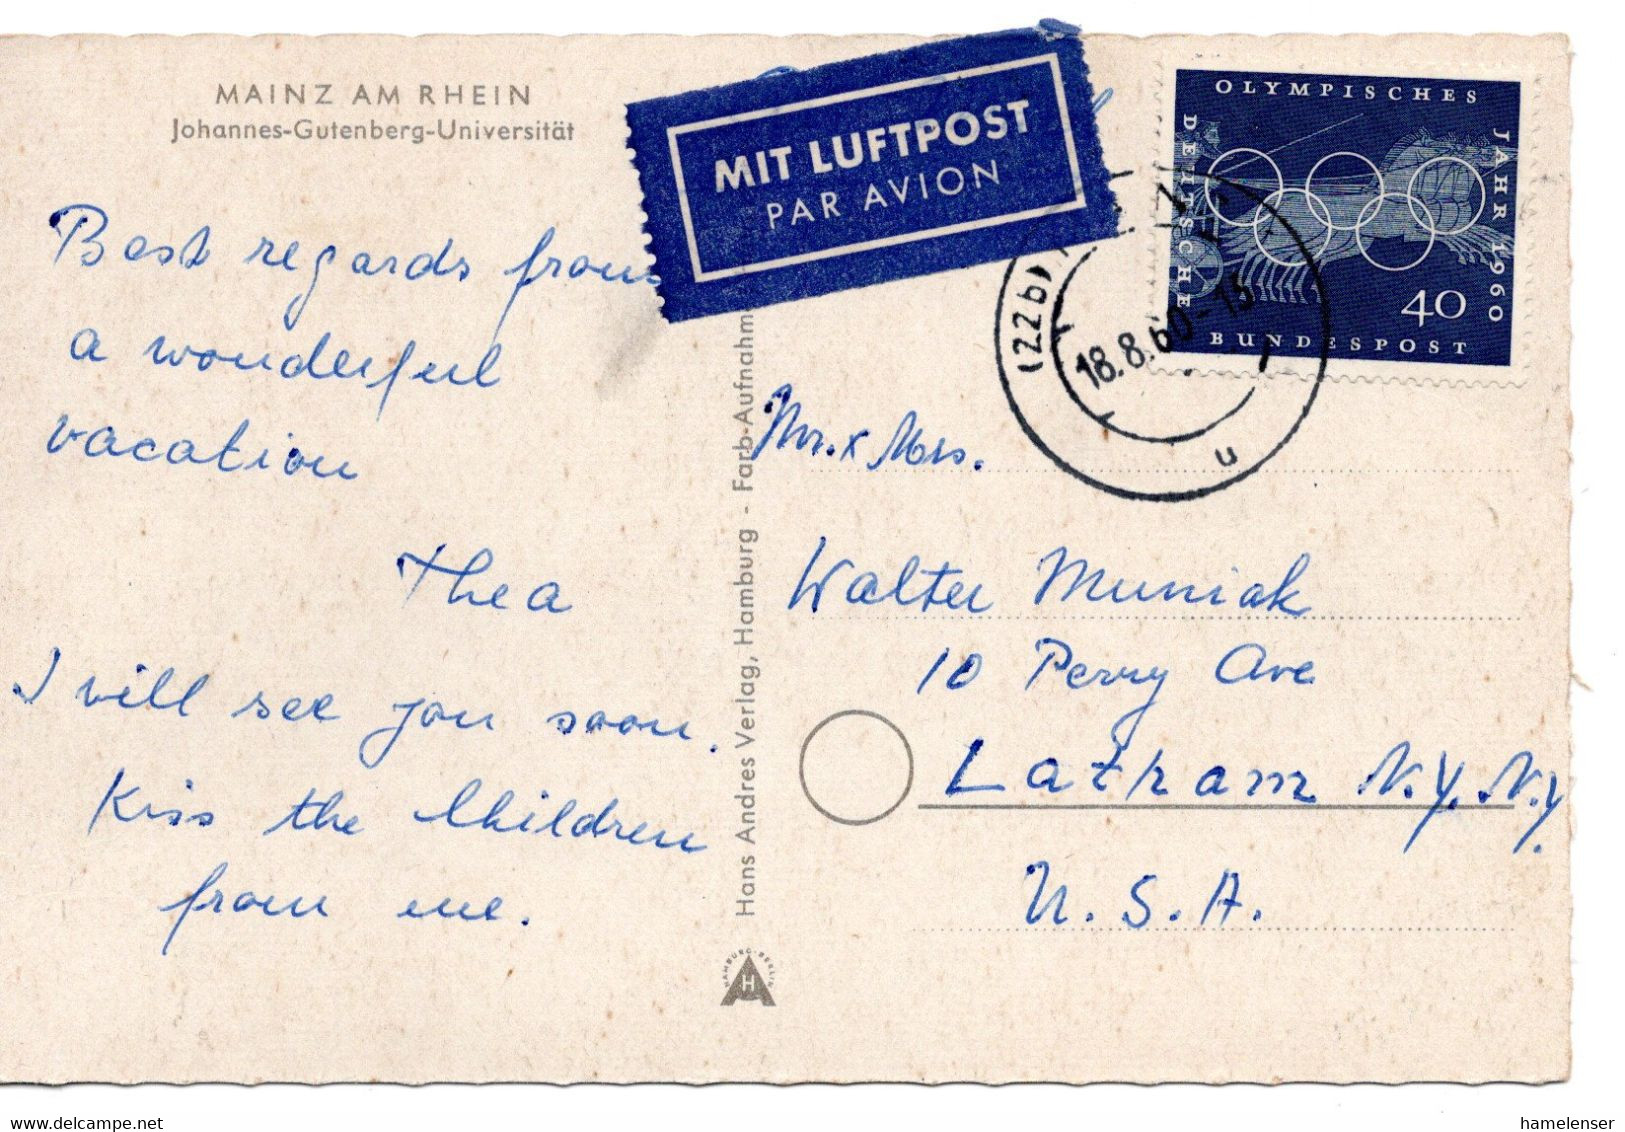 MAINZ AM RHEIN
Johannes-Gutenberg-Universität
Best regards from
a wonderful
vacation
Thea
I will see you soon.
Kiss the Children
from me.
Hans Andres Verlag, Hamburg - Farb-Aufnahme
HAMBURG-BERLIN
H
MIT LUFTPOST
PAR AVION
OLYMPISCHES
JAHR 1960
DEUTSCHE
BUNDESPOST
40
(22b)
18.8.60-15
u
Mr. & Mrs.
Walter Muniak
10 Perry Ave
Latham N.Y. N.Y.
U.S.A.
www.delcampe.net
hamelenser